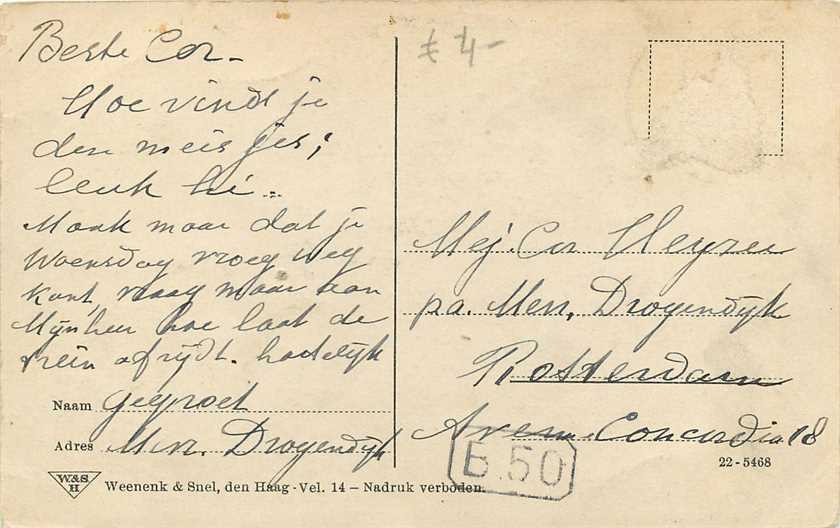 Beste Cor -
Hoe vind je
den meisjes;
leuk hé..
Maak maar dat je
Woensdag vroeg weg
kont, vraag maar aan
Mijnheer hoe laat de
trein afrijdt. hadelijk
Naam gegroet
Adres Mevr. Drogendijk
W&S.
H
Weenenk & Snel, den Haag - Vel. 14 – Nadruk verboden.
€ 4-
Mej. Cor
pa. Mevr. Drogendijk
Rotterdam
Concordia 18
B.50
22-5468